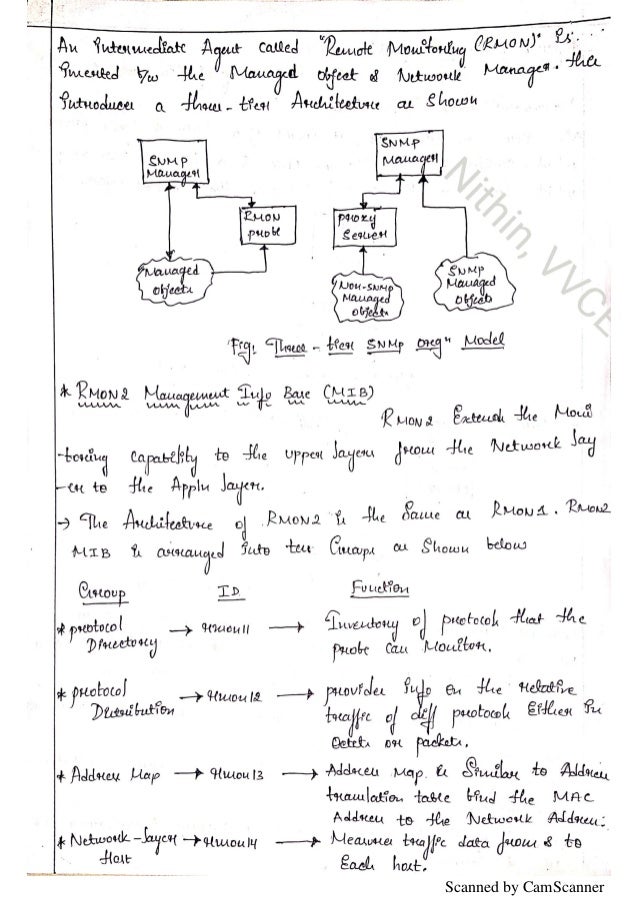 An Intermediate Agent called "Remote Monitoring (RMON)" is
Inserted b/w the Managed object & Network Manager. this
Introduces a three-tier Architecture as shown
SNMP
Manager
RMON
probe
Managed
objects
SNMP
Manager
proxy
Server
Non-SNMP
Managed
objects
SNMP
Managed
objects
Fig: Three-tier SNMP orgn Model
* RMON2 Management Info Base (MIB)
RMON2 Extends the Moni
-toring capability to the upper layers from the Network lay
-er to the Appln layer.
→ The Architecture of RMON2 is the same as RMON1. RMON2
MIB is arranged into ten Groups as shown below
Group ID Function
* protocol Directory → rmon 11 → Inventory of protocols that the
probe can Monitor.
* protocol Distribution → rmon 12 → provides info on the relative
traffic of diff protocols Either in
Octets or packets.
* Address Map → rmon 13 → Address Map is similar to Address
translation table bind the MAC
Address to the Network Address:
* Network-layer Host → rmon 14 → Measures traffic data from & to
Each host.
Nithin, VVCE
Scanned by CamScanner